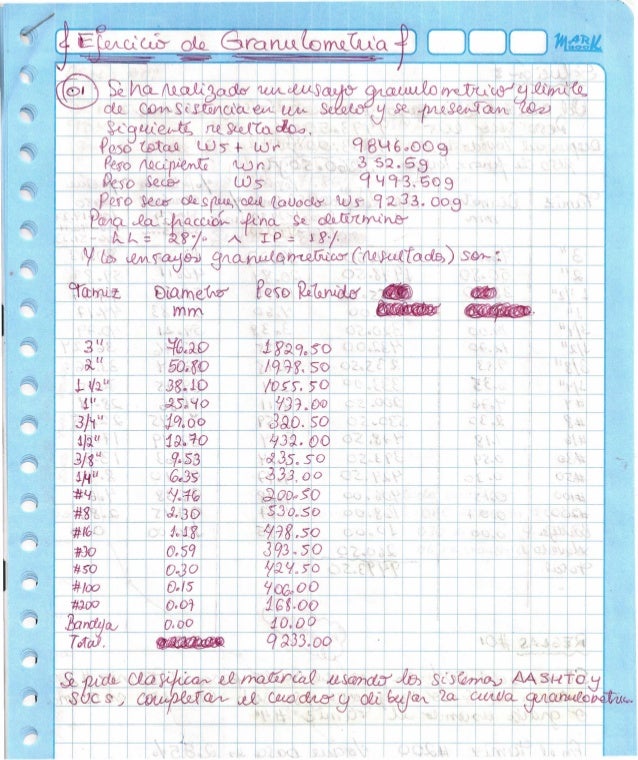 Ejercicio de Granulometria
MARK
01 Se ha realizado un ensayo granulometrico y limite
de consistencia en un suelo y se presentan los
siguientes resultados.
Peso total Ws + Wr 9846.00g
Peso recipiente Wr 352.5g
Peso seco Ws 9493.50g
Pero seco despues del lavado Ws. 9233.00g
Para la fracción fina se determino
LL = 28% ^ IP = 18%
Y los ensayos granulometrico (resultados) son:
Tamiz Diametro Peso Retenido
mm
3" 76.20 1829.50
2" 50.80 1978.50
1 1/2" 38.10 1055.50
1" 25.40 437.00
3/4" 19.00 320.50
1/2" 12.70 432.00
3/8" 9.53 235.50
1/4" 6.35 333.00
#4 4.76 200.50
#8 2.30 530.50
#16 1.18 478.50
#30 0.59 393.50
#50 0.30 424.50
#100 0.15 406.00
#200 0.07 168.00
Bandeja 0.00 10.00
Total 9233.00
Se pide clasificar el material usando los sistemas AASHTO y
SUCS, completar el cuadro y dibujar la curva granulometrica